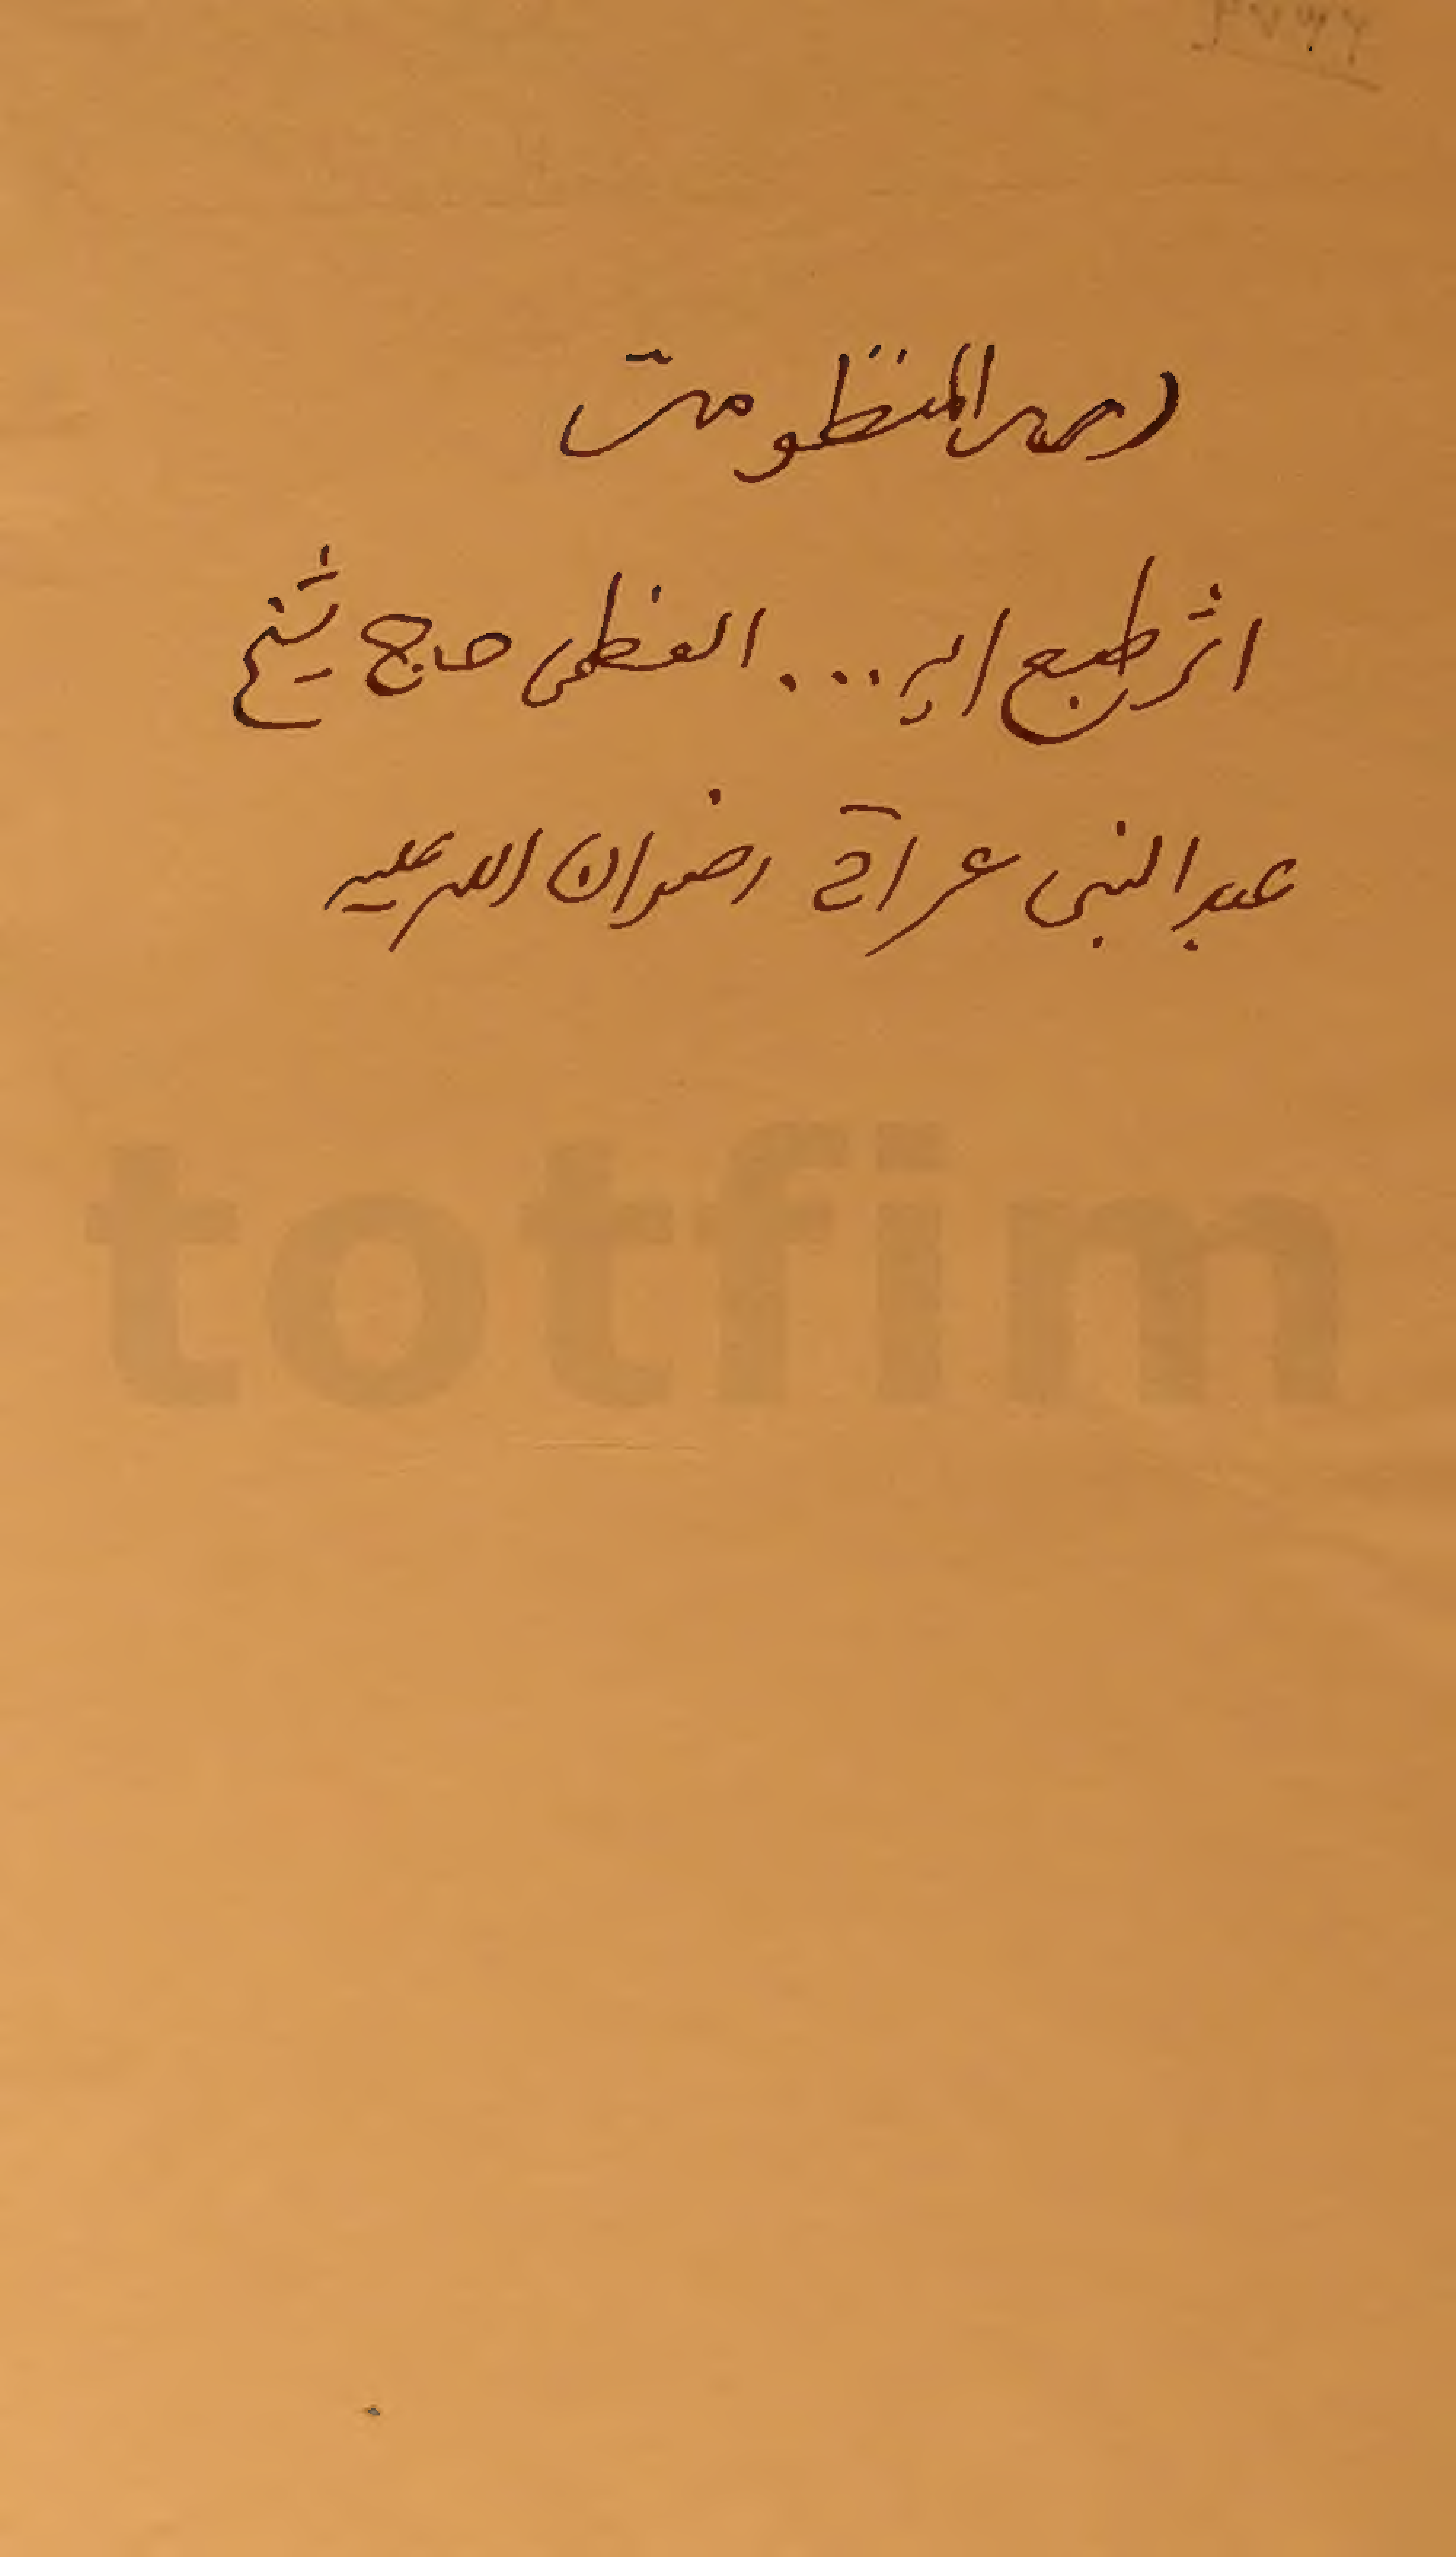 المنظومة
اثر طبع ایة ... العظمی حاج شیخ
عبد النبی عراقی رضوان الله علیه
totfim